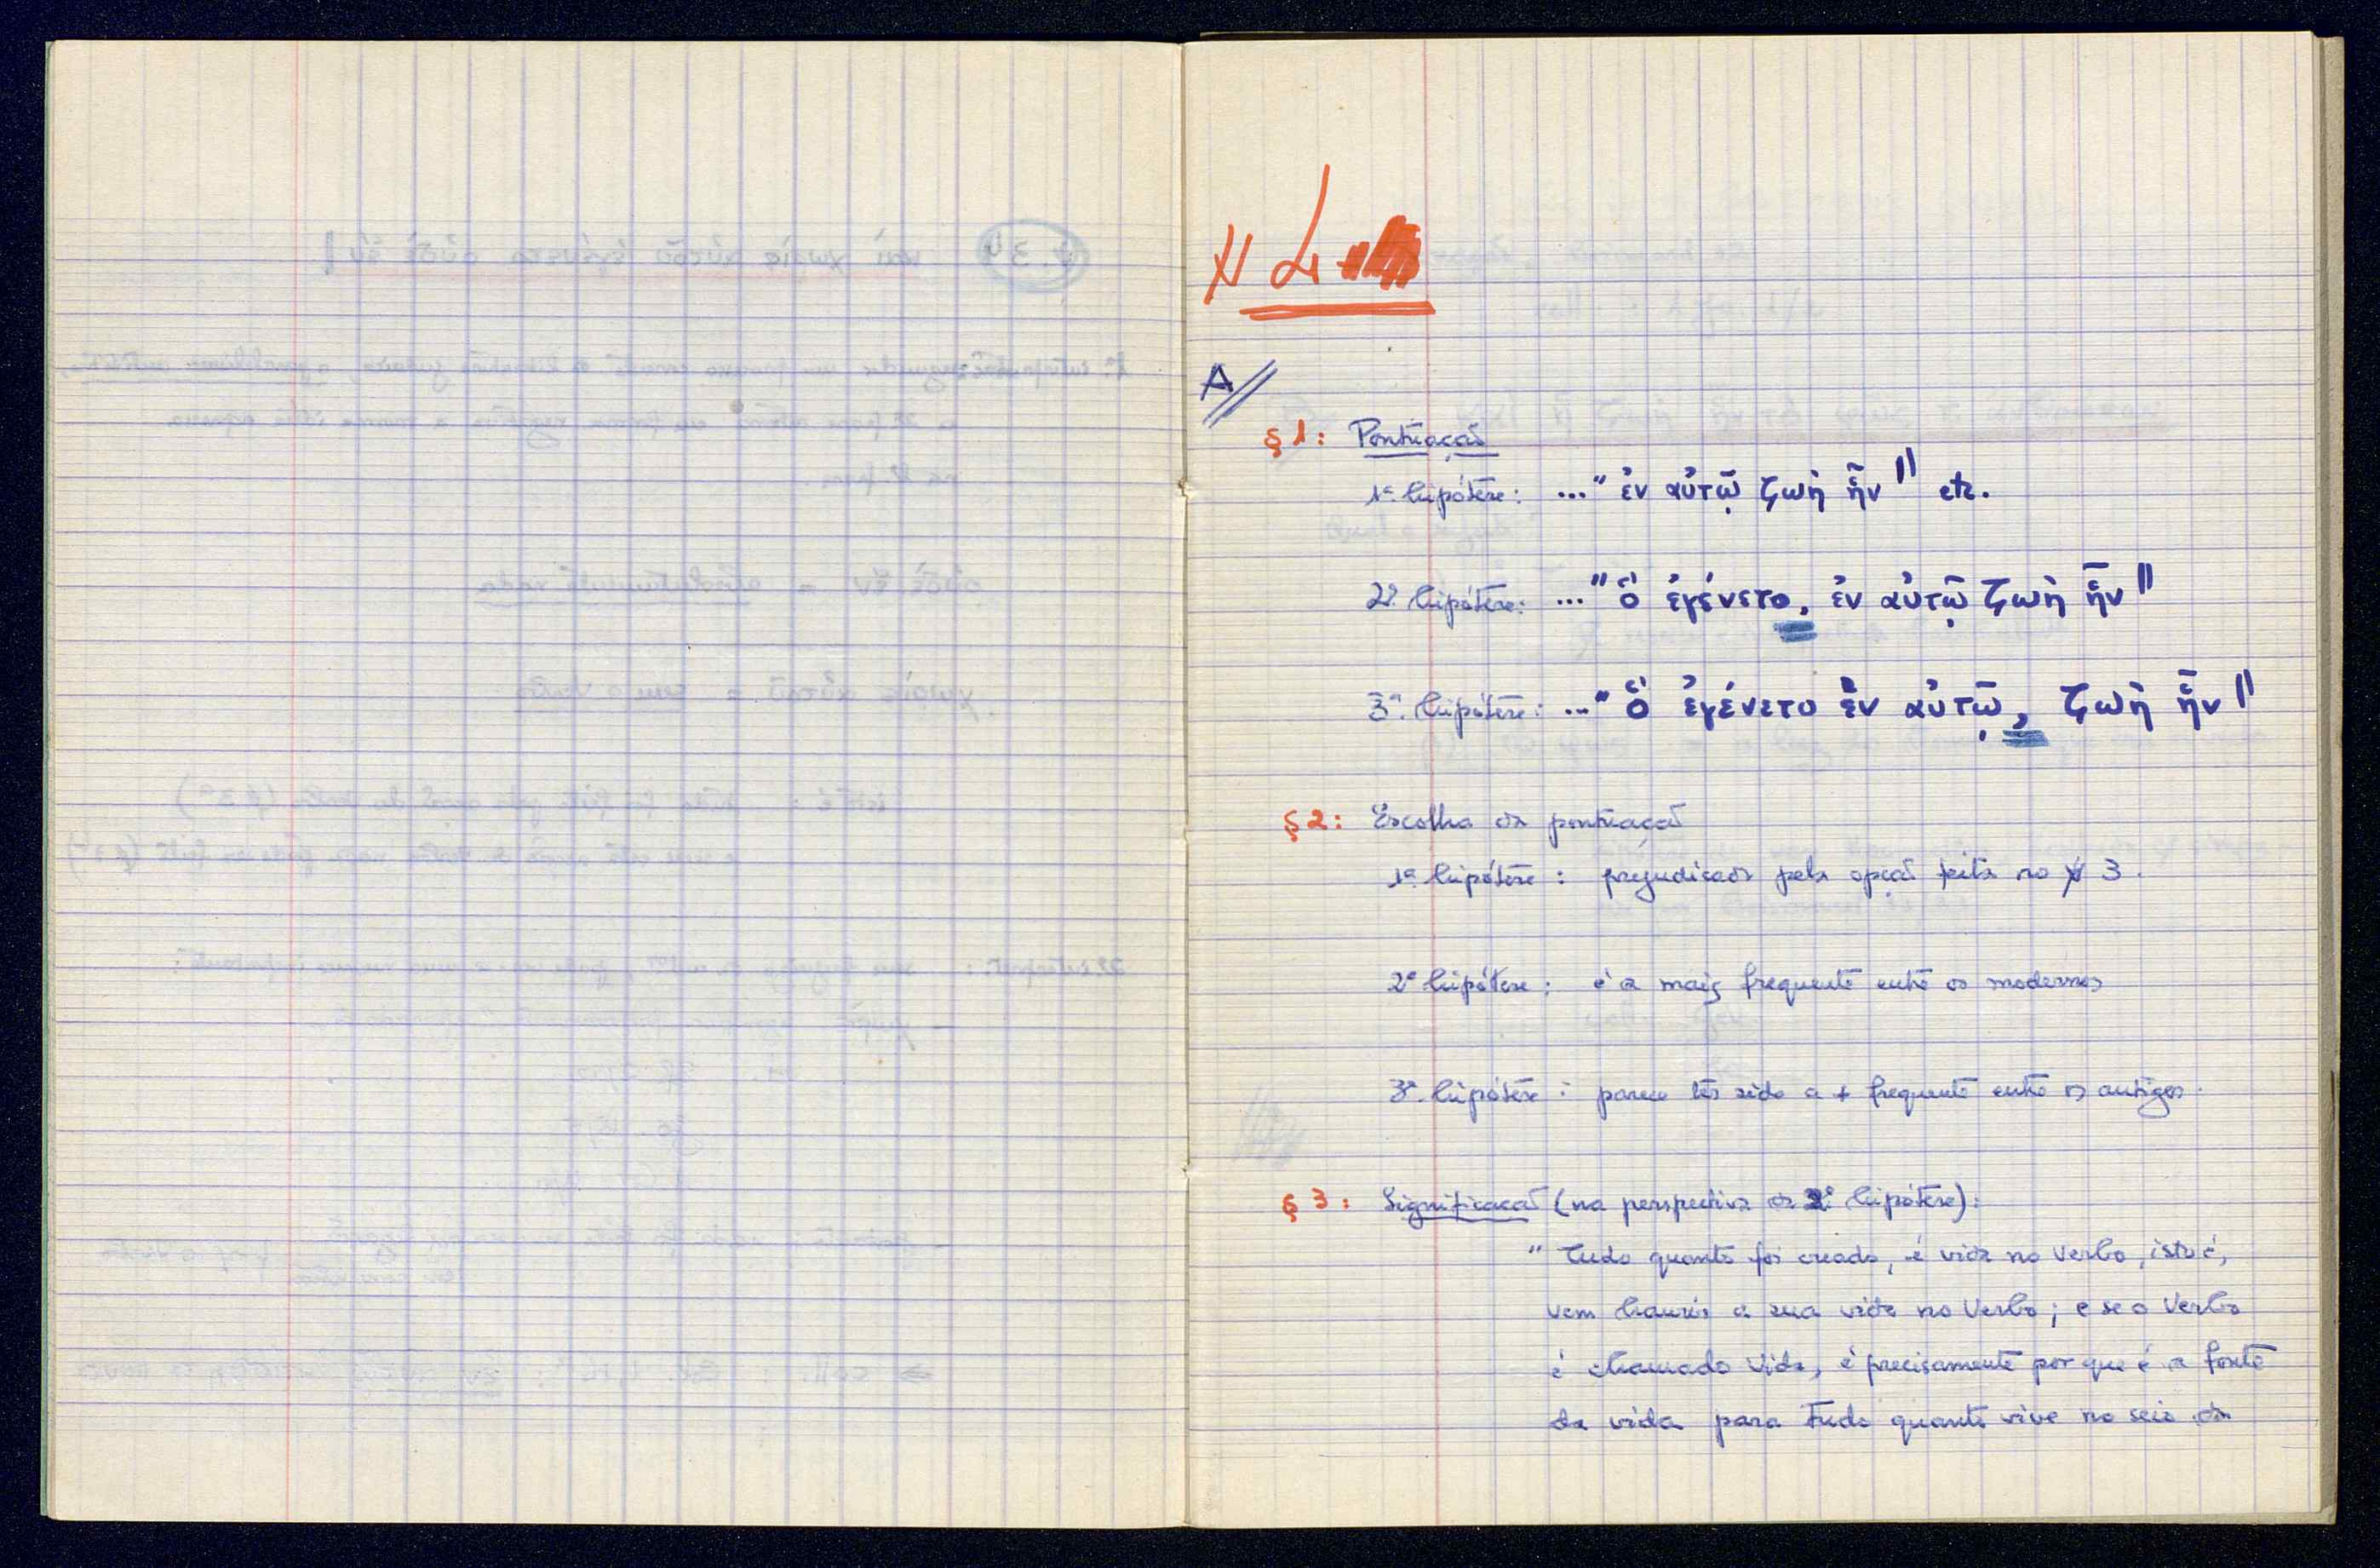 ℣ 4
A//
§ 1: Pontuação
1ª hipótese: ... " ἐν αὐτῷ ζωὴ ἦν " etc.
2ª hipótese: ... " ὃ ἐγένετο, ἐν αὐτῷ ζωὴ ἦν "
3ª hipótese: ... " ὃ ἐγένετο ἐν αὐτῷ, ζωὴ ἦν "
§ 2: Escolha da pontuação
1ª hipótese: prejudicada pela opção feita no ℣ 3.
2ª hipótese: é a mais frequente entre os modernos
3ª hipótese: parece ter sido a + frequente entre os antigos.
§ 3: Significação (na perspectiva da 2ª hipótese):
" Tudo quanto foi creado, é vida no Verbo, isto é,
vem haurir a sua vida no Verbo; e se o Verbo
é chamado Vida, é precisamente por que é a fonte
da vida para tudo quanto vive no seio da